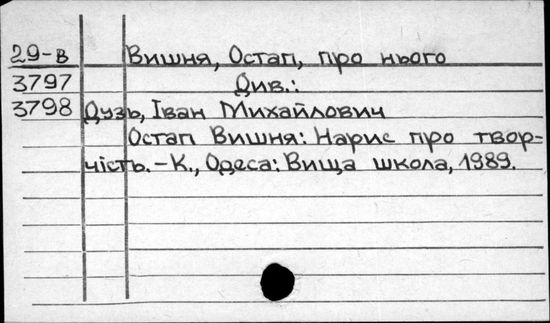 29-в Вишня, Остап, про нього
3797 Див.:
3798 Дузь, Іван Михайлович
Остап Вишня: Нарис про твор=
чість.-К., Одеса: Вища школа, 1989.